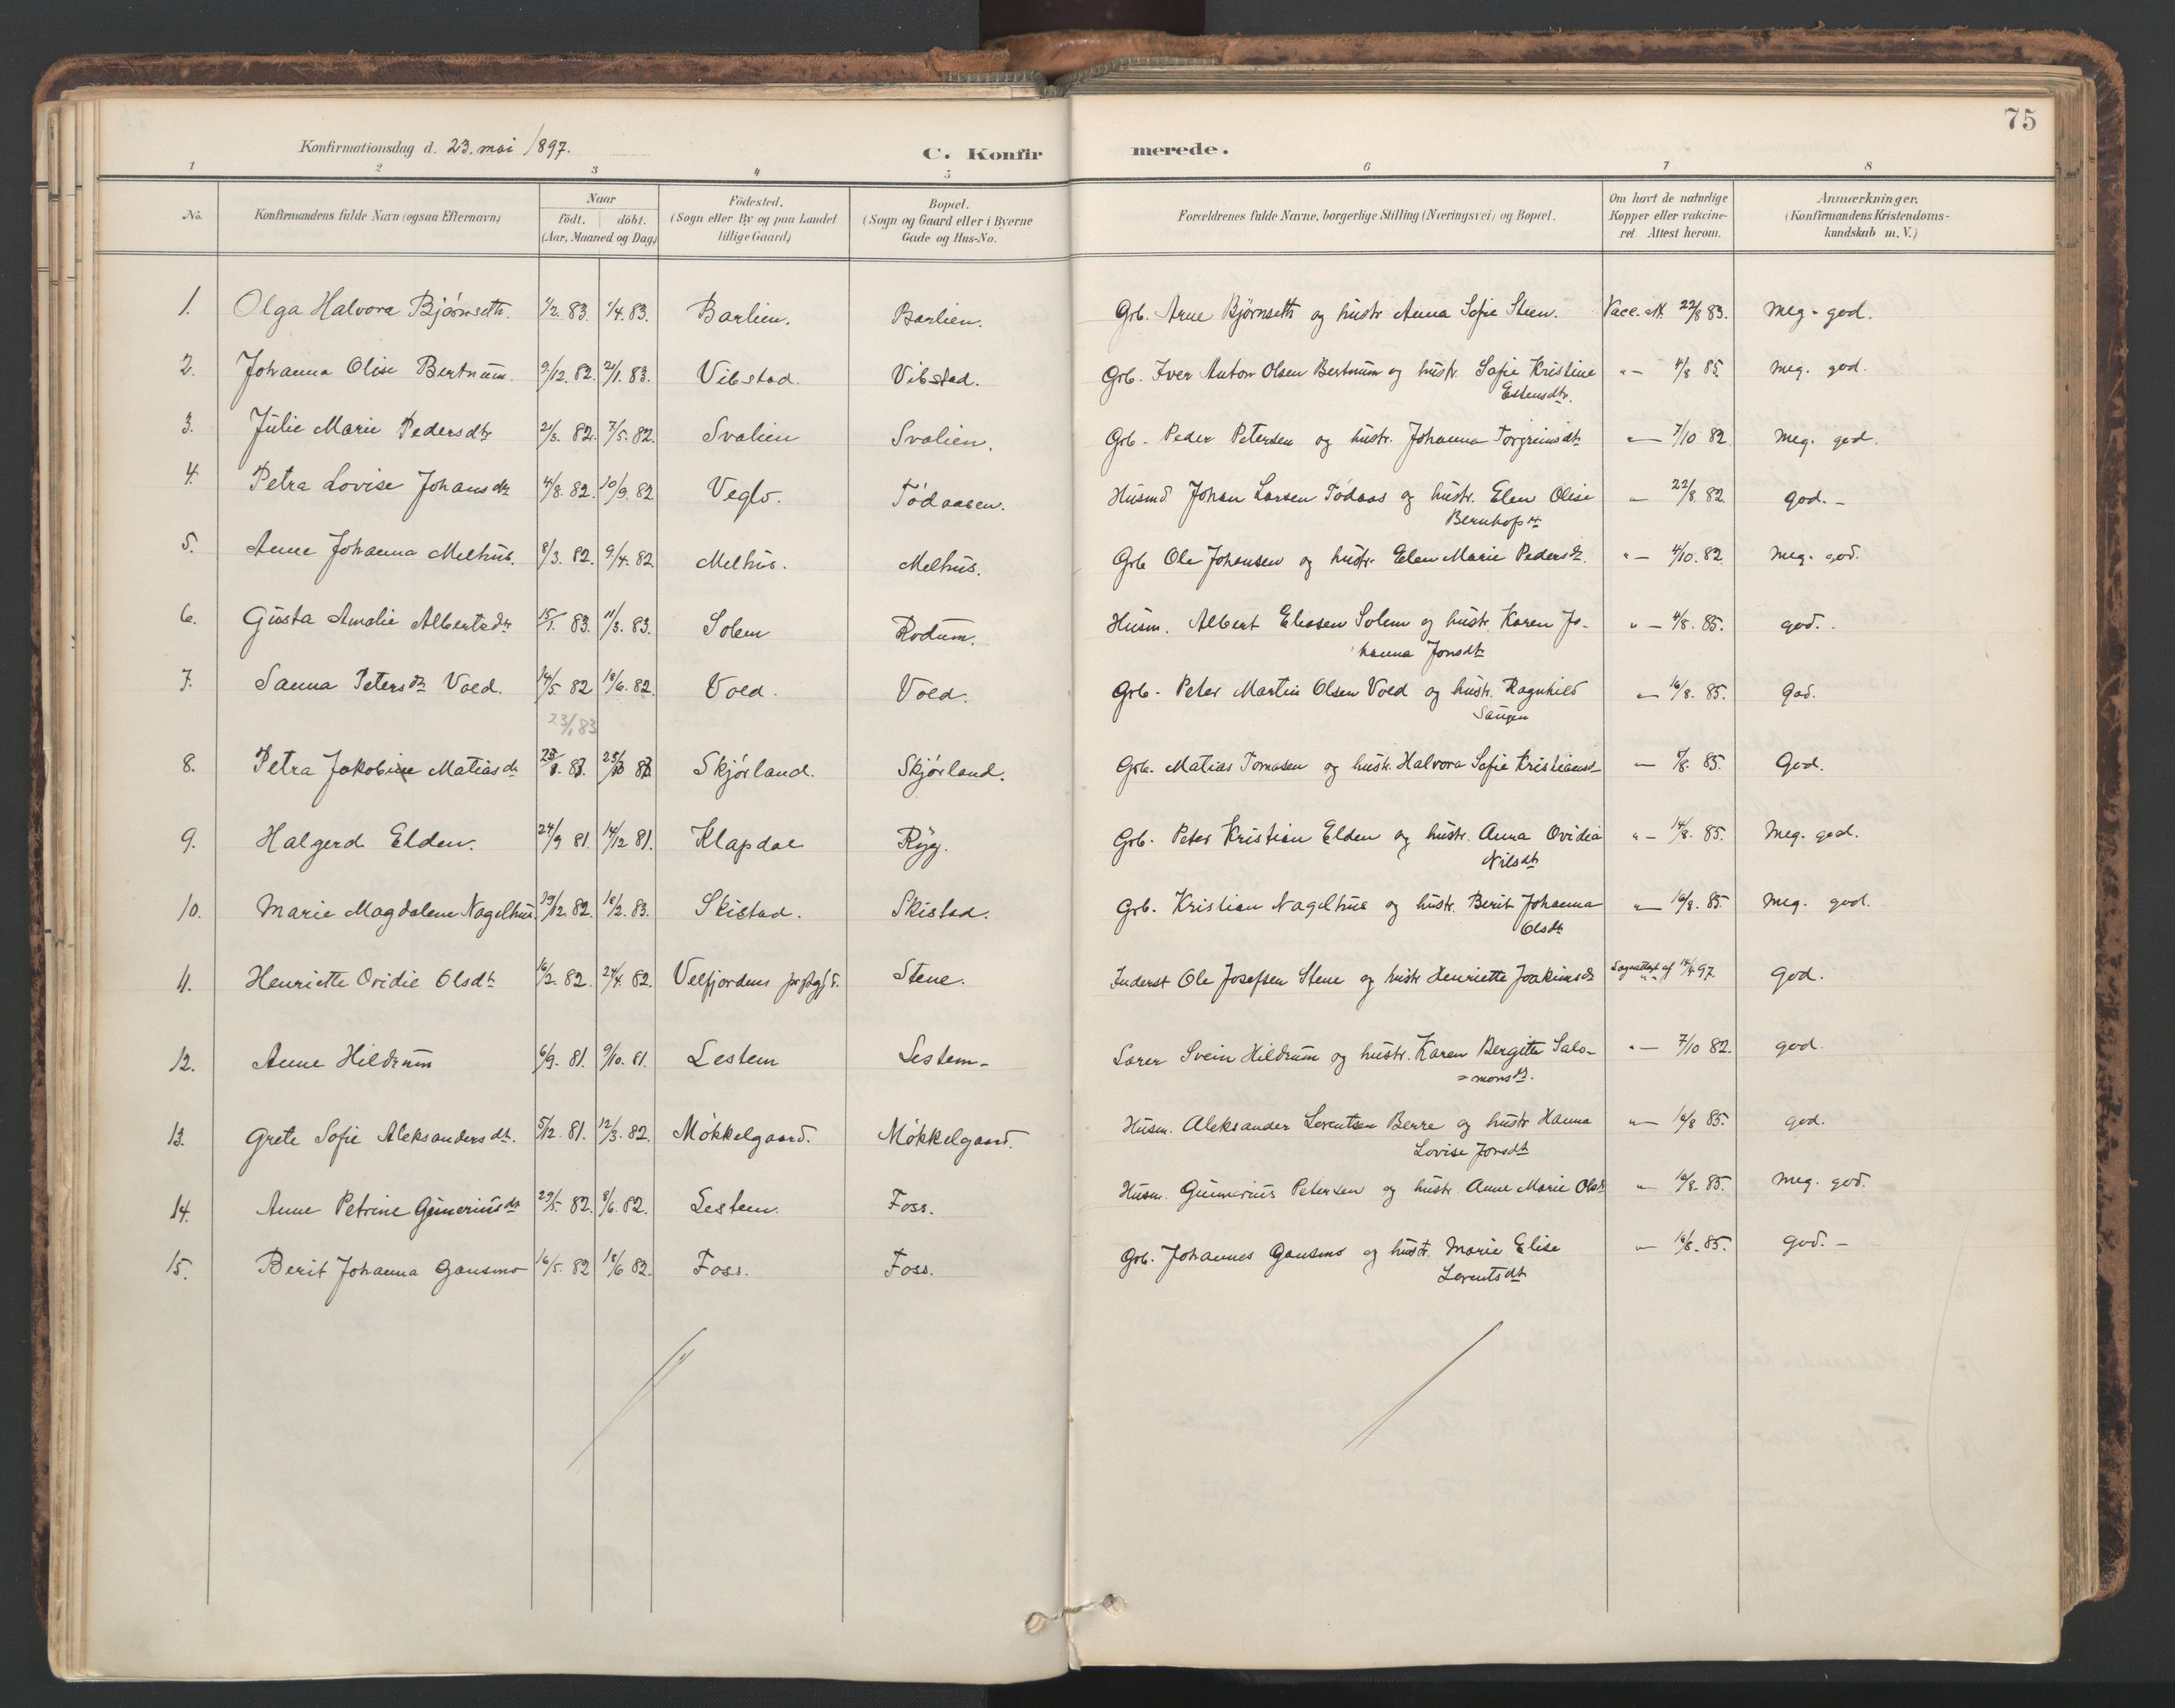 75
Konfirmationsdag d. 23. mai 1897.
C. Konfirmerede.
1 2 3 4 5 6 7 8
No. | Konfirmandens fulde Navn (ogsaa Efternavn) | Naar födt. | döbt. (Aar, Maaned og Dag) | Födested. (Sogn eller By og paa Landet tillige Gaard) | Bopæl. (Sogn og Gaard eller i Byerne Gade og Hus-No. | Forældrenes fulde Navne, borgerlige Stilling (Næringsvei) og Bopæl. | Om havt de naturlige Kopper eller vakcineret. Attest herom. | Anmærkninger. (Konfirmandens Kristendomskundskab m. V.)
1. Olga Halvora Bjørnseth. 1/2. 83. 1/4. 83. Barlien. Barlien. Grb. Arne Bjørnseth og hustr Anna Sofie Steen. Vacc. att. 22/8 83. Meg. god.
2. Johanna Olise Bertnum. 9/12. 82. 21/1. 83. Vibstad. Vibstad. Grb. Iver Anton Olsen Bertnum og hustr. Sofie Kristine
Estensdtr. "— 4/8 85. Meg. god.
3. Julie Marie Pedersdtr 21/3. 82. 7/5. 82. Svalien Svalien. Grb. Peder Petersen og hustr. Johanna Torgrimsdtr "— 7/10 82. Meg. god.
4. Petra Lovise Johansdtr 4/8. 82. 10/9. 82 Veglo. Tödaasen. Husmd Johan Larsen Tödaas og hustr. Elen Olise
Bernhofsdt "— 22/8 82. god. –
5. Anne Johanna Melhus. 8/3. 82. 9/4. 82 Melhus. Melhus. Grb Ole Johansen og hustr. Elen Marie Pedersdt. "— 4/10. 82. Meg. god.
6. Gusta Amalie Albertsdtr 15/1. 83. 11/3. 83. Solem Rodum. Husm. Albert Eliasen Solem og hustr. Karen Jo-
hanna Jonsdtr "— 4/8. 85. god.
7. Sanna Petersdtr Vold. 14/5. 82 18/6. 82. Vold. Vold. Grb. Peter Martin Olsen Vold og hustr. Ragnhild
Saugen "— 16/8. 85. God.
23/1 83
8. Petra Jakobine Matiasdtr Skjörland. Skjörland. Grb. Matias Tomasen og hustr. Halvora Sofie Kristiansdt "— 85. God.
9. Halgerd Elden. 24/9 81. 14/12 81. Klapdal Ryg. Grb. Peter Kristian Elden og hustr. Anna Ovidia
Nilsdtr "— 14/8. 85. Meg. god.
10. Marie Magdalene Nagelhus 19/12. 82. 18/2. 83. Skistad. Skistad. Grb. Kristian Nagelhus og hustr. Berit Johanna
Olsdtr "— 16/8. 85. Meg. god.
11. Henriette Ovidie Olsdtr 16/2. 82. 24/4. 82. Velfjordens prstgjd. Stene. Inderst Ole Josefsen Stene og hustr Henriette Joakimsdtr af 14/4 97. God.
12. Anne Hildrum 6/9. 81. 9/10. 81. Lestem Lestem. Lærer Svein Hildrum og hustr. Karen Bergitte Salo-
= monsdtr. "— 7/10 82. god.
13. Grete Sofie Aleksandersdt. 5/12. 81. 12/3. 82. Mökkelgaard. Mökkelgaard. Husm. Aleksander Lorentsen Berre og hustr Hanna
Lovise Jonsdtr "— 16/8 85. god.
14. Anne Petrine Gunneriusdtr 29/5. 82. 8/6. 82. Lestem. Foss. Husm. Gunnerius Petersen og hustr. Anne Marie Olsdtr "— 16/8. 85. Meg. god.
15. Berit Johanna Gansmo 16/5. 82 18/6 82. Foss. Foss. Grb. Johannes Gansmo og hustr. Marie Elise
Lorentsdtr "— 16/8. 85. god. –